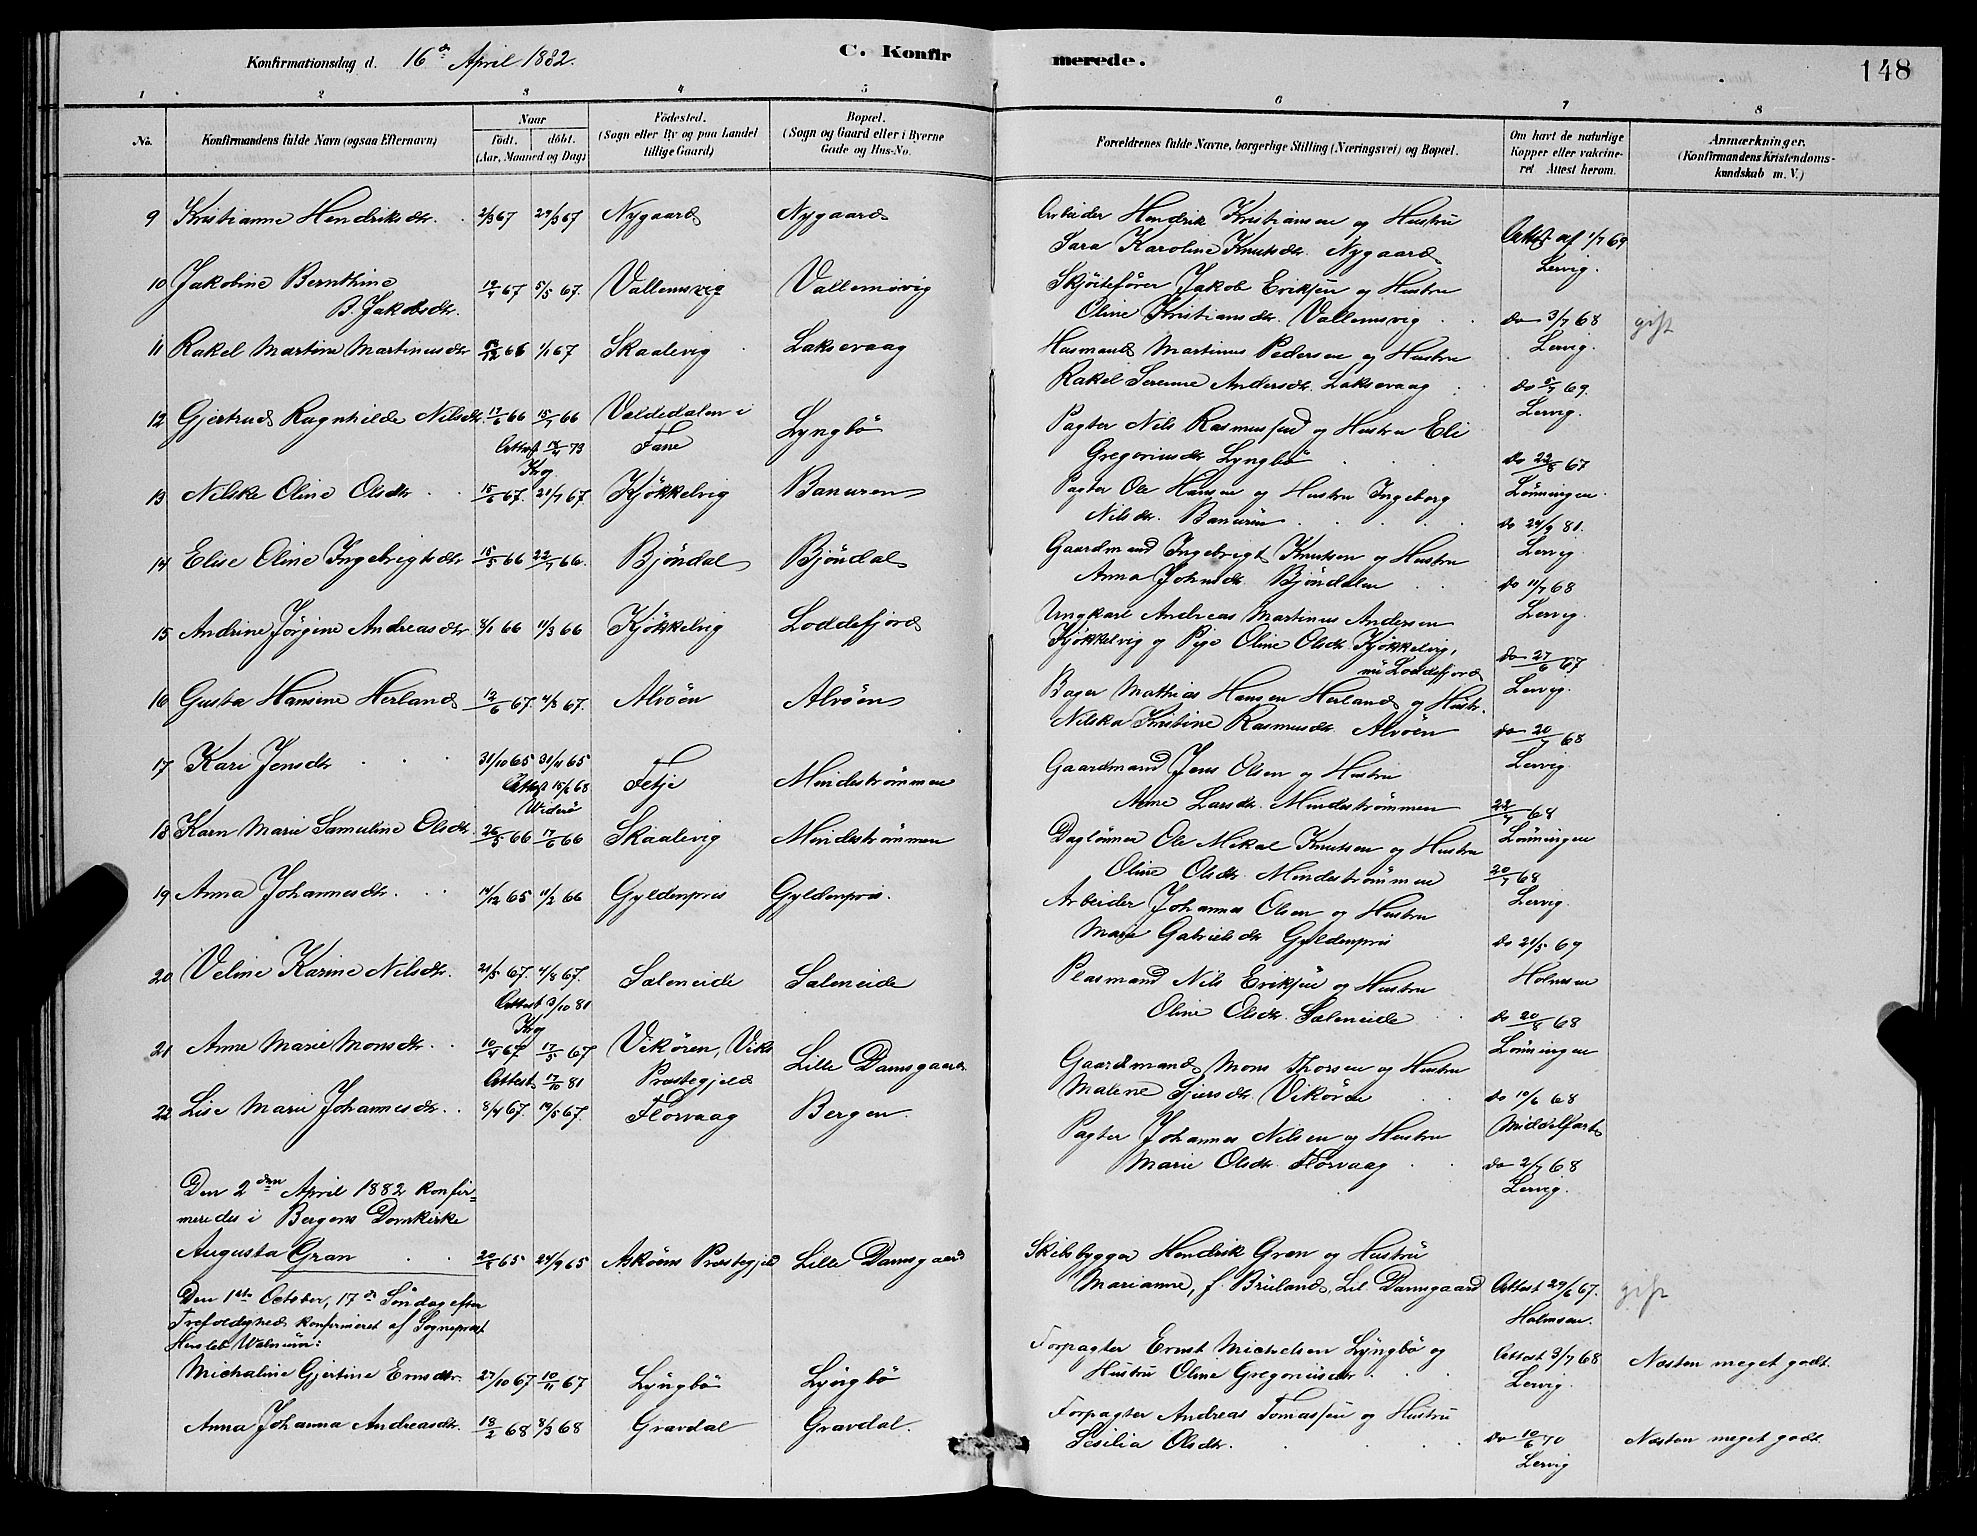 Konfirmationsdag d. 16de April 1882.
C. Konfirmerede.
148
1 2 3 4 5 6 7 8
No.
Konfirmandens fulde Navn (ogsaa Efternavn)
Naar
födt. döbt.
(Aar, Maaned og Dag)
Födested.
(Sogn eller By og paa Landet
tillige Gaard)
Bopæl.
(Sogn og Gaard eller i Byerne
Gade og Hus-No.
Forældrenes fulde Navne, borgerlige Stilling (Næringsvei) og Bopæl.
Om havt de naturlige
Kopper eller vakcine-
ret Attest herom.
Anmærkninger.
(Konfirmandens Kristendoms-
kundskab m. V.)
9 Kristianne Hendriksdtr. 2/3 67 24/3 67 Nygaard Nygaard
Arbeider Hendrik Kristiansen og Hustru
Sara Karoline Knutsdr. Nygaard
Attest af 1/7 69
Lervig.
10 Jakobine Bernthine
B. Jakobsdtr. 67 5/5 67. Vallemsvig Vallemsvig
Skjöitefører Jakob Eriksen og Hustru
Oline Kristiansdr. Vallemsvig
do 3/7 68 gift
Lervig.
11 Rakel Martine Martinusdtr 66 1/1 67 Skaalevig Laksevaag
Husmand Martinus Pedersen og Hustru
Rakel Serenne Andersdr. Laksevaag
do 5/7 69.
Lervig.
12 Gjertrud Ragnhilde Nilsdtr. 17/6 66 15/7 66 Valdedalen i
Fane Lyngbö
Attest 73
Krog
Pagter Nils Rasmussen og Hustru Eli
Gregoriusdtr Lyngbö
do 22/8 67
Lönningen.
13 Nilske Oline Olsdtr 15/6 67. 21/7 67. Kjökkelvig Banuren
Pagter Ole Hansen og Hustru Ingeborg
Nilsdr. Banuren
do 24/9 81.
Lervig.
14 Elise Oline Ingebrigtsdtr 15/5 66 22/7 66. Bjöndal Bjöndal
Gaardmand Ingebrigt Knutsen og Hustru
Anna Johnsdr. Bjöndalen
do 11/7 68
Lervig.
15 Andrine Jörgine Andreasdtr 8/1 66 11/3 66 Kjökkelvig Loddefjord
Ungkarl Andreas Martinus Andersen
Kjökkelvig og Pige Oline Olsdr. Kjökkelvig,
nu Loddefjord
do 27/6 67
Lervig.
16 Gusta Hansine Herland 12/6 67. 4/8 67. Alvöen Alvöen
Bager Mathias Hansen Herland og Hustr.
Nilska Kristine Rasmusdr. Alvöen
do 20/7 68
Lervig.
17 Kari Jensdtr 31/10 65 31/11 65 Fetje Mindeströmmen
Attest 15/6 68
Widerö
Gaardmand Jens Olsen og Hustru
Anne Larsdr. Mindeströmmen
22/7 68
Lönningen
18 Karn Marie Samuline Olsdtr. 26/5 66 17/6 66 Skaalevig Mindeströmmen
Daglönner Ole Mikal Knutsen og Hustru
Oline Olsdr. Mindeströmmen
20/7 68
Lervig.
19 Anna Johannesdtr. 14/12 65 11/2 66 Gyldenpris Gyldenpris.
Arbeider Johannes Olsen og Hustru
Marie Gabrielsdr Gyldenpris
do 21/5 69
Holmsen
20 Veline Karine Nilsdtr. 21/5 67. 4/8 67. Saleneide Saleneide
Attest 3/10 81
Krog
Pladsmand Nils Eriksen og Hustru
Oline Olsdtr. Saleneide
do 20/8 68
Lönningen
21 Anne Marie Monsdtr. 10/4 67. 17/5 67 Vikören, Viks
Præstegjeld Lille Damsgaard
Attest 17/10 81
Gaardmand Mons Thorsen og Hustru
Malene Sjursdr. Vikören
do 10/6 68
Middelfart
22 Lise Marie Johannesdtr. 8/4 67. 19/5 67. Florvaag Bergen
Pagter Johannes Nilsen og Hustru
Marie Olsdr. Florvaag
do 2/7 68
Lervig.
Den 2den April 1882 konfir=
meredes i Bergens Domkirke
Augusta Gran 20/8 65 24/9 65 Askøens Præstegjeld Lille Damsgaard
Skibsbygger Hendrik Gran og Hustru
Marianne, f. Brüland, Lil. Damsgaard Attest 29/6 67. gift
Holmsen.
Den 1ste October, 17de Söndag efter
Trefoldighed konfirmeret af Sogneprest
Hersleb Walnum:
Michaline Gjertine Ernsdtr. 27/10 67 10/11 67 Lyngbö Lyngbö
Forpagter Ernst Michelsen Lyngbö og
Hustru Oline Gregoriusdtr.
Attest 3/7 68 Næsten meget godt.
Lervig.
Anna Johanna Andreasdtr. 18/2 68 8/3 68 Gravdal Gravdal.
Forpagter Andreas Tomassen og Hustru
Sesilia Olsdtr.
do 10/6 70 Næsten meget godt.
Lervig